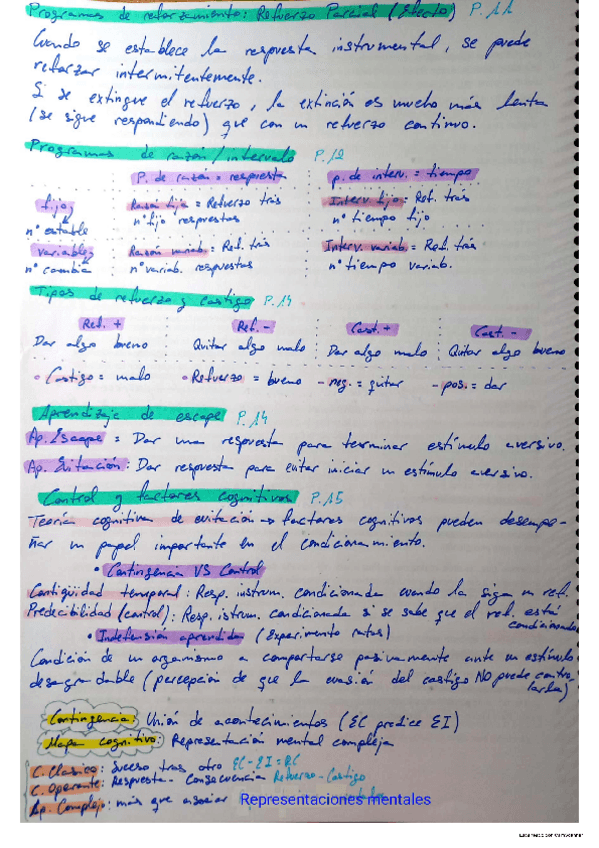 Programas de reforzamiento: Refuerzo Parcial (Efecto) P.11
Cuando se establece la respuesta instrumental, se puede
reforzar intermitentemente.
Si se extingue el refuerzo, la extinción es mucho más lenta
(se sigue respondiendo) que con un refuerzo continuo.
Programas de razón/intervalo P.12
P. de razón = respuesta p. de interv. = tiempo
fijo Razón fija = Refuerzo trás Interv. fijo = Ref. trás
nº estable nº fijo respuestas nº tiempo fijo
variable Razón variab. = Ref. trás Interv. variab. = Ref. trás
nº cambia nº variab. respuestas nº tiempo variab.
Tipos de refuerzo y castigo P.14
Ref. + Ref. - Cast. + Cast. -
Dar algo bueno Quitar algo malo Dar algo malo Quitar algo bueno
• Castigo = malo • Refuerzo = bueno - neg. = quitar - pos. = dar
Aprendizaje de escape P.14
Ap. Escape = Dar una respuesta para terminar estímulo aversivo.
Ap. Evitación: Dar respuesta para evitar iniciar un estímulo aversivo.
Control y factores cognitivos P.15
Teoría cognitiva de evitación → factores cognitivos pueden desempe-
ñar un papel importante en el condicionamiento.
• Contingencia VS Control
Contigüidad temporal: Resp. instrum. condicionada cuando la siga un ref.
Predecibilidad (control): Resp. istrum. condicionada si se sabe que el ref. está
condicionado
• Indefensión aprendida (Experimento ratas)
Condición de un organismo a comportarse pasivamente ante un estímulo
desagradable (percepción de que la evasión del castigo NO puede contro
larla)
Contingencia: Unión de acontecimientos (EC predice EI)
Mapa cognitivo: Representación mental compleja
C. Clásico: suceso tras otro EC-EI=RC
C. Operante: Respuesta - Consecuencia Refuerzo-Castigo
Ap. Complejo: más que asociar Representaciones mentales